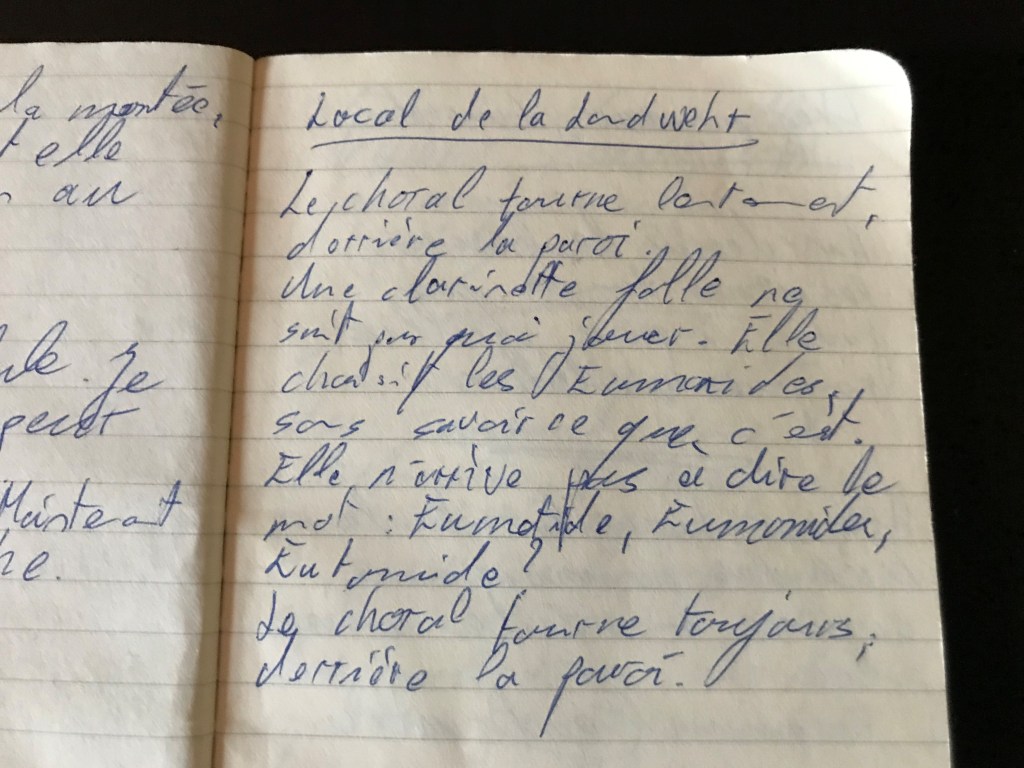 la montée,
elle
au
Je
peut
Maintenant
Local de la Landwehr
Le choral tourne lentement,
derrière la paroi.
Une clarinette folle ne
sait pas quoi jouer. Elle
choisit les Euménides,
sans savoir ce que c'est.
Elle n'arrive pas à dire le
mot : Eumétide, Euménider,
Eutémide?
Le choral tourne toujours,
derrière la paroi.